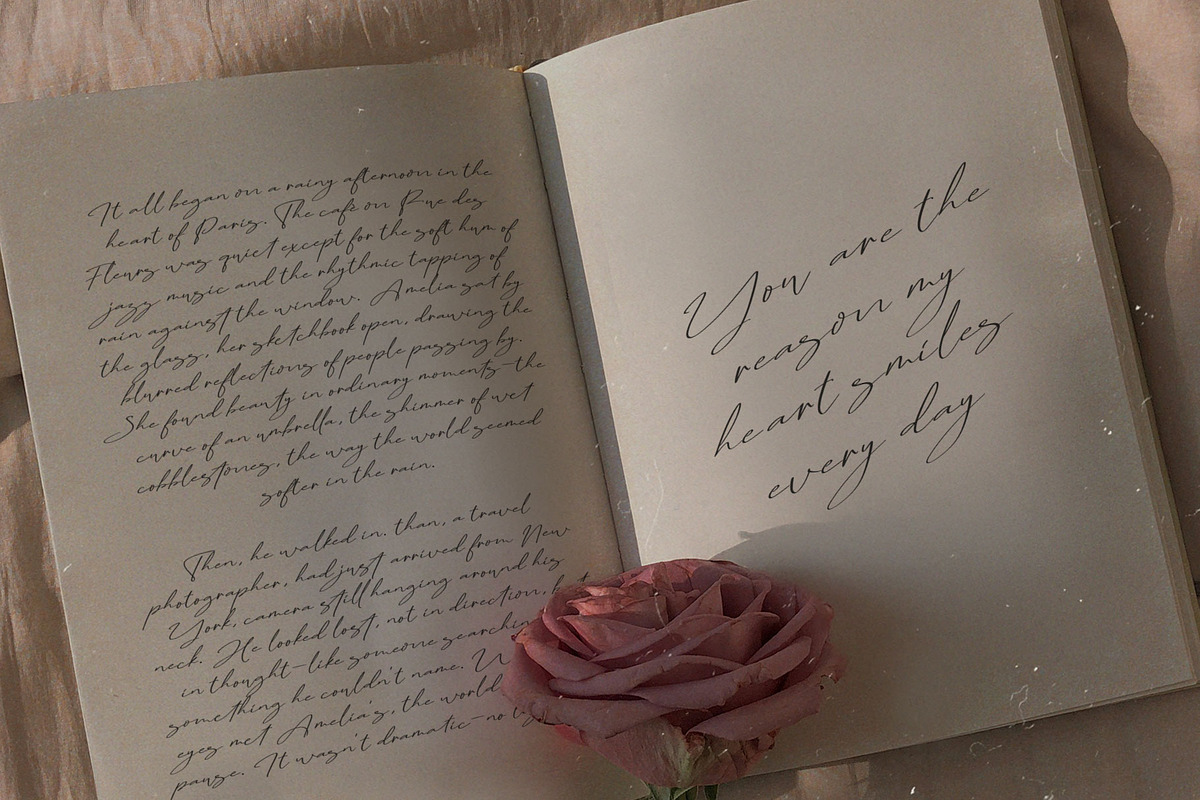 It all began on a rainy afternoon in the
heart of Paris. The cafe on Rue des
Fleurs was quiet except for the soft hum of
jazz music and the rhythmic tapping of
rain against the window. Amelia sat by
the glass, her sketchbook open, drawing the
blurred reflections of people passing by.
She found beauty in ordinary moments—the
curve of an umbrella, the shimmer of wet
cobblestones, the way the world seemed
softer in the rain.
Then, he walked in. than, a travel
photographer, had just arrived from New
York, camera still hanging around his
neck. He looked lost, not in direction,
in thought—like someone
something he couldn't name.
eyes met Amelia's, the world
pause. It wasn't dramatic—no
You are the
reason my
heart smiles
every day